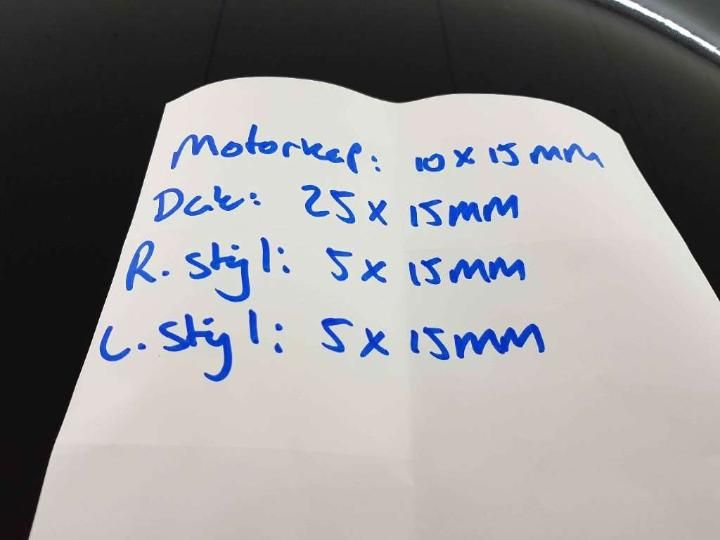 Motorkap: 10 x 15 mm
Dak: 25 x 15mm
R. stijl: 5 x 15mm
L. stijl: 5 x 15mm